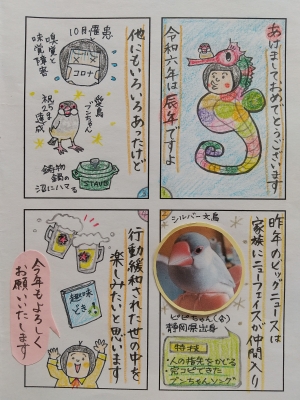 あけましておめでとうございます
令和六年は辰年ですよ
昨年のビッグニュースは
家族にニューフェイスが仲間入り
シルバー文鳥
ピピちゃん(♂)
静岡県出身
特技
・人の指先をかじる
・完コピできた
ブンちゃんソング
10月罹患
コロナ
嗅覚と
味覚障害
愛鳥
ブンちゃん
祝2さい
達成
鋳物
鍋の
沼にハマる
STAUB
他にもいろいろあったけど
行動緩和された世の中を
楽しみたいと思います
趣味
どき
今年もよろしく
お願いいたします